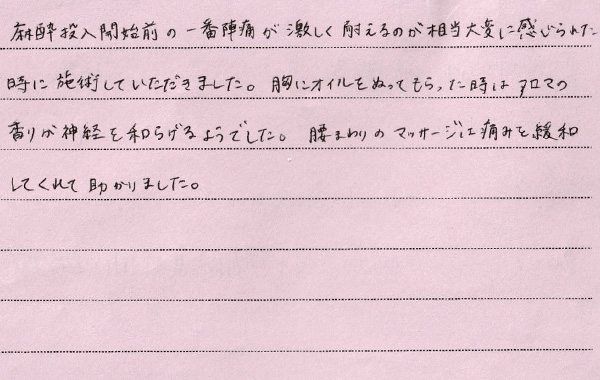 麻酔投入開始前の一番陣痛が激しく耐えるのが相当大変に感じられた
時に施術していただきました。胸にオイルをぬってもらった時はアロマの
香りが神経を和らげるようでした。腰まわりのマッサージは痛みを緩和
してくれて助かりました。